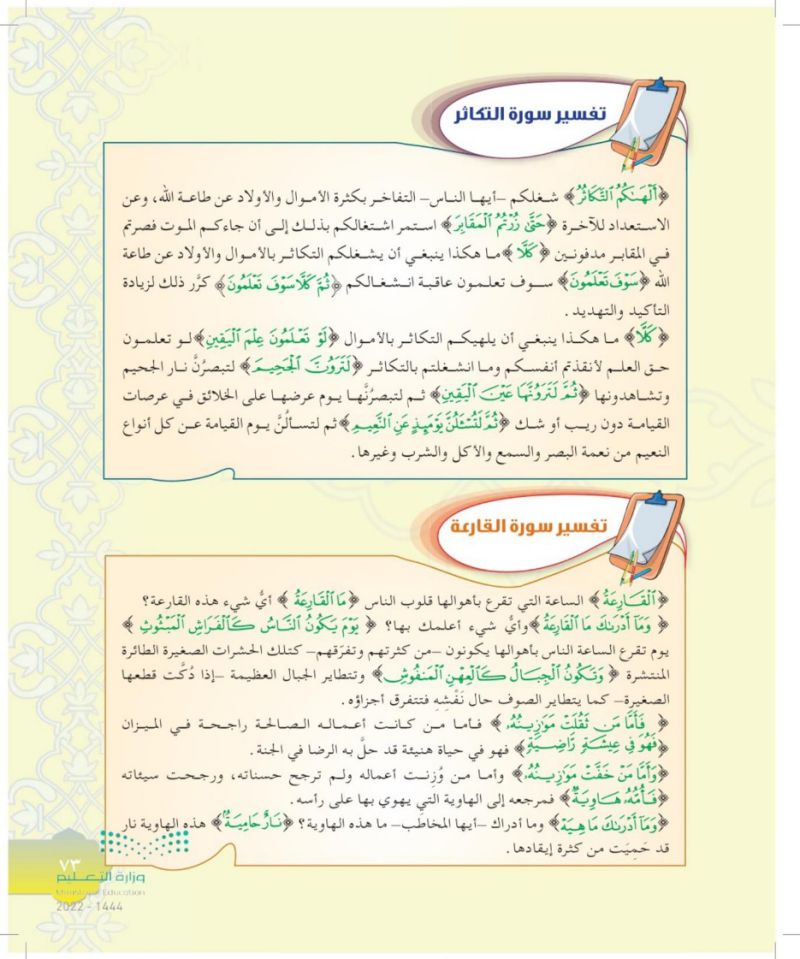 تفسير سورة التكاثر
﴿أَلْهَىٰكُمُ ٱلتَّكَاثُرُ﴾ شغلكم –أيها الناس– التفاخر بكثرة الأموال والأولاد عن طاعة الله، وعن
الاستعداد للآخرة ﴿حَتَّىٰ زُرْتُمُ ٱلْمَقَابِرَ﴾ استمر اشتغالكم بذلك إلى أن جاءكم الموت فصرتم
في المقابر مدفونين ﴿كَلَّا﴾ ما هكذا ينبغي أن يشغلكم التكاثر بالأموال والأولاد عن طاعة
الله ﴿سَوْفَ تَعْلَمُونَ﴾ سوف تعلمون عاقبة انشغالكم ﴿ثُمَّ كَلَّا سَوْفَ تَعْلَمُونَ﴾ كرَّر ذلك لزيادة
التأكيد والتهديد .
﴿كَلَّا﴾ ما هكذا ينبغي أن يلهيكم التكاثر بالأموال ﴿لَوْ تَعْلَمُونَ عِلْمَ ٱلْيَقِينِ﴾ لو تعلمون
حق العلم لأنقذتم أنفسكم وما انشغلتم بالتكاثر ﴿لَتَرَوُنَّ ٱلْجَحِيمَ﴾ لتبصرُنَّ نار الجحيم
وتشاهدونها ﴿ثُمَّ لَتَرَوُنَّهَا عَيْنَ ٱلْيَقِينِ﴾ ثم لتبصرُنَّها يوم عرضها على الخلائق في عرصات
القيامة دون ريب أو شك ﴿ثُمَّ لَتُسْـَٔلُنَّ يَوْمَئِذٍ عَنِ ٱلنَّعِيمِ﴾ ثم لتسألُنَّ يوم القيامة عن كل أنواع
النعيم من نعمة البصر والسمع والأكل والشرب وغيرها.
تفسير سورة القارعة
﴿ٱلْقَارِعَةُ﴾ الساعة التي تقرع بأهوالها قلوب الناس ﴿مَا ٱلْقَارِعَةُ﴾ أيُّ شيء هذه القارعة؟
﴿وَمَآ أَدْرَىٰكَ مَا ٱلْقَارِعَةُ﴾ وأيُّ شيء أعلمك بها؟ ﴿يَوْمَ يَكُونُ ٱلنَّاسُ كَٱلْفَرَاشِ ٱلْمَبْثُوثِ﴾
يوم تقرع الساعة الناس بأهوالها يكونون –من كثرتهم وتفرّقهم– كتلك الحشرات الصغيرة الطائرة
المنتشرة ﴿وَتَكُونُ ٱلْجِبَالُ كَٱلْعِهْنِ ٱلْمَنفُوشِ﴾ وتتطاير الجبال العظيمة –إذا دُكَّت قطعها
الصغيرة– كما يتطاير الصوف حال نَفْشِهِ فتتفرق أجزاؤه.
﴿فَأَمَّا مَن ثَقُلَتْ مَوَٰزِينُهُۥ﴾ فأما من كانت أعماله الصالحة راجحة في الميزان
﴿فَهُوَ فِى عِيشَةٍ رَّاضِيَةٍ﴾ فهو في حياة هنيئة قد حلَّ به الرضا في الجنة.
﴿وَأَمَّا مَنْ خَفَّتْ مَوَٰزِينُهُۥ﴾ وأما من وُزِنت أعماله ولم ترجح حسناته، ورجحت سيئاته
﴿فَأُمُّهُۥ هَاوِيَةٌ﴾ فمرجعه إلى الهاوية التي يهوي بها على رأسه.
﴿وَمَآ أَدْرَىٰكَ مَا هِيَهْ﴾ وما أدراك –أيها المخاطب– ما هذه الهاوية؟ ﴿نَارٌ حَامِيَةٌ﴾ هذه الهاوية نار
قد حَمِيَت من كثرة إيقادها.
٧٣
وزارة التعليم
Ministry of Education
2022 - 1444